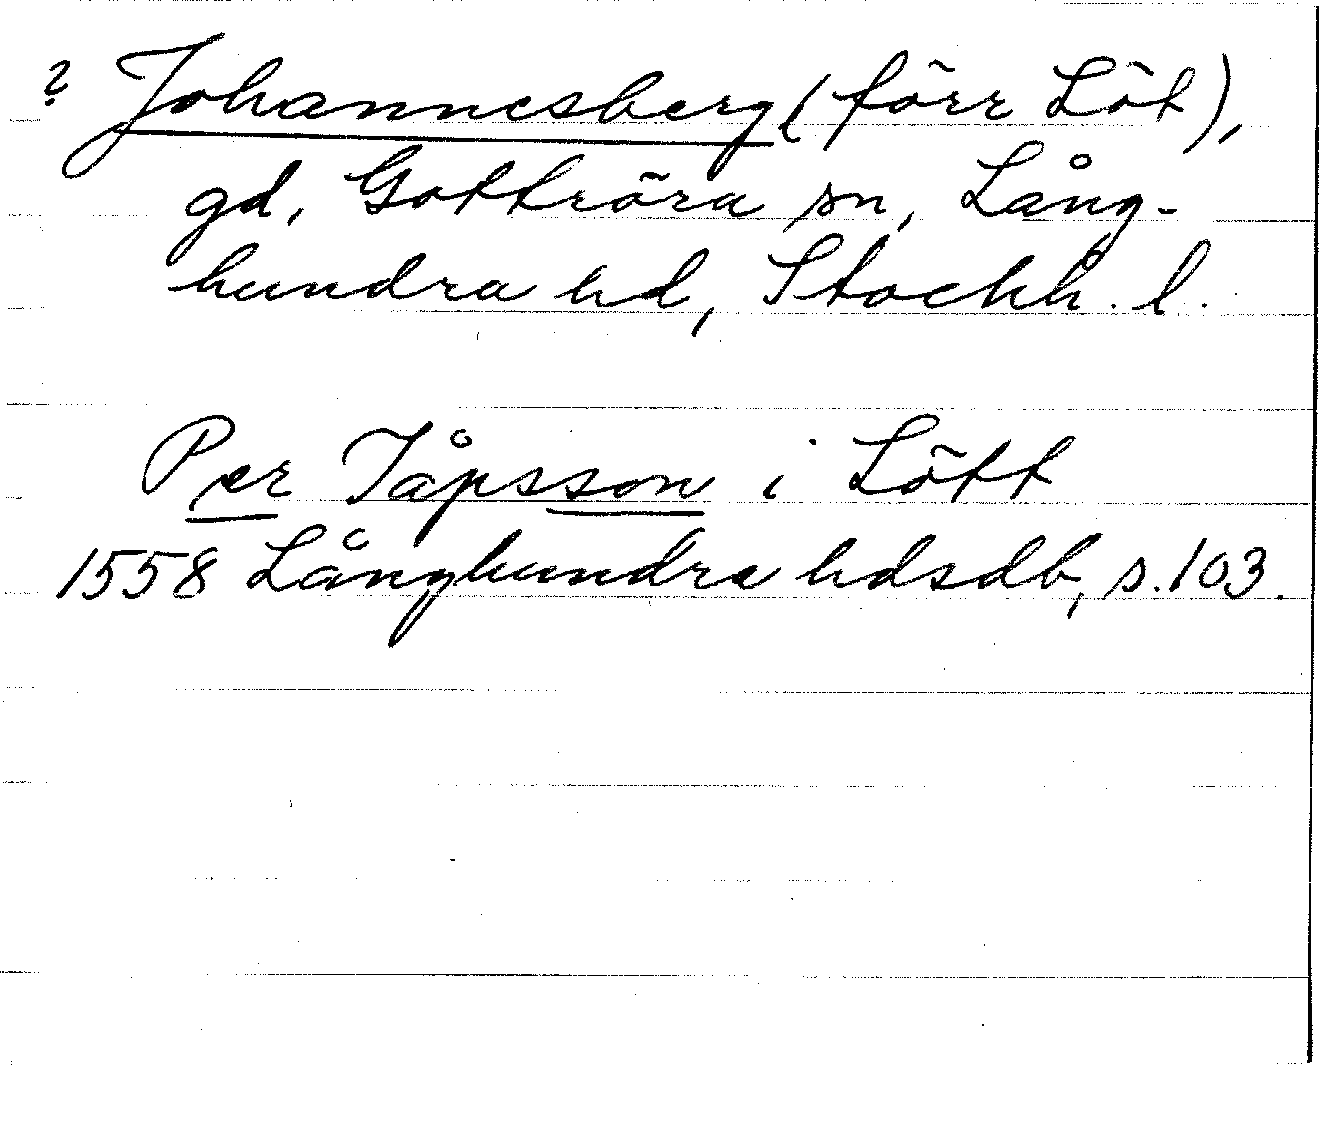 ? Johannesberg (förr Löt),
gd, Gottröra sn, Lång-
hundra hd, Stockh. l.
Per Jåpsson i Lött
1558 Långhundra hdsdb, s. 103.